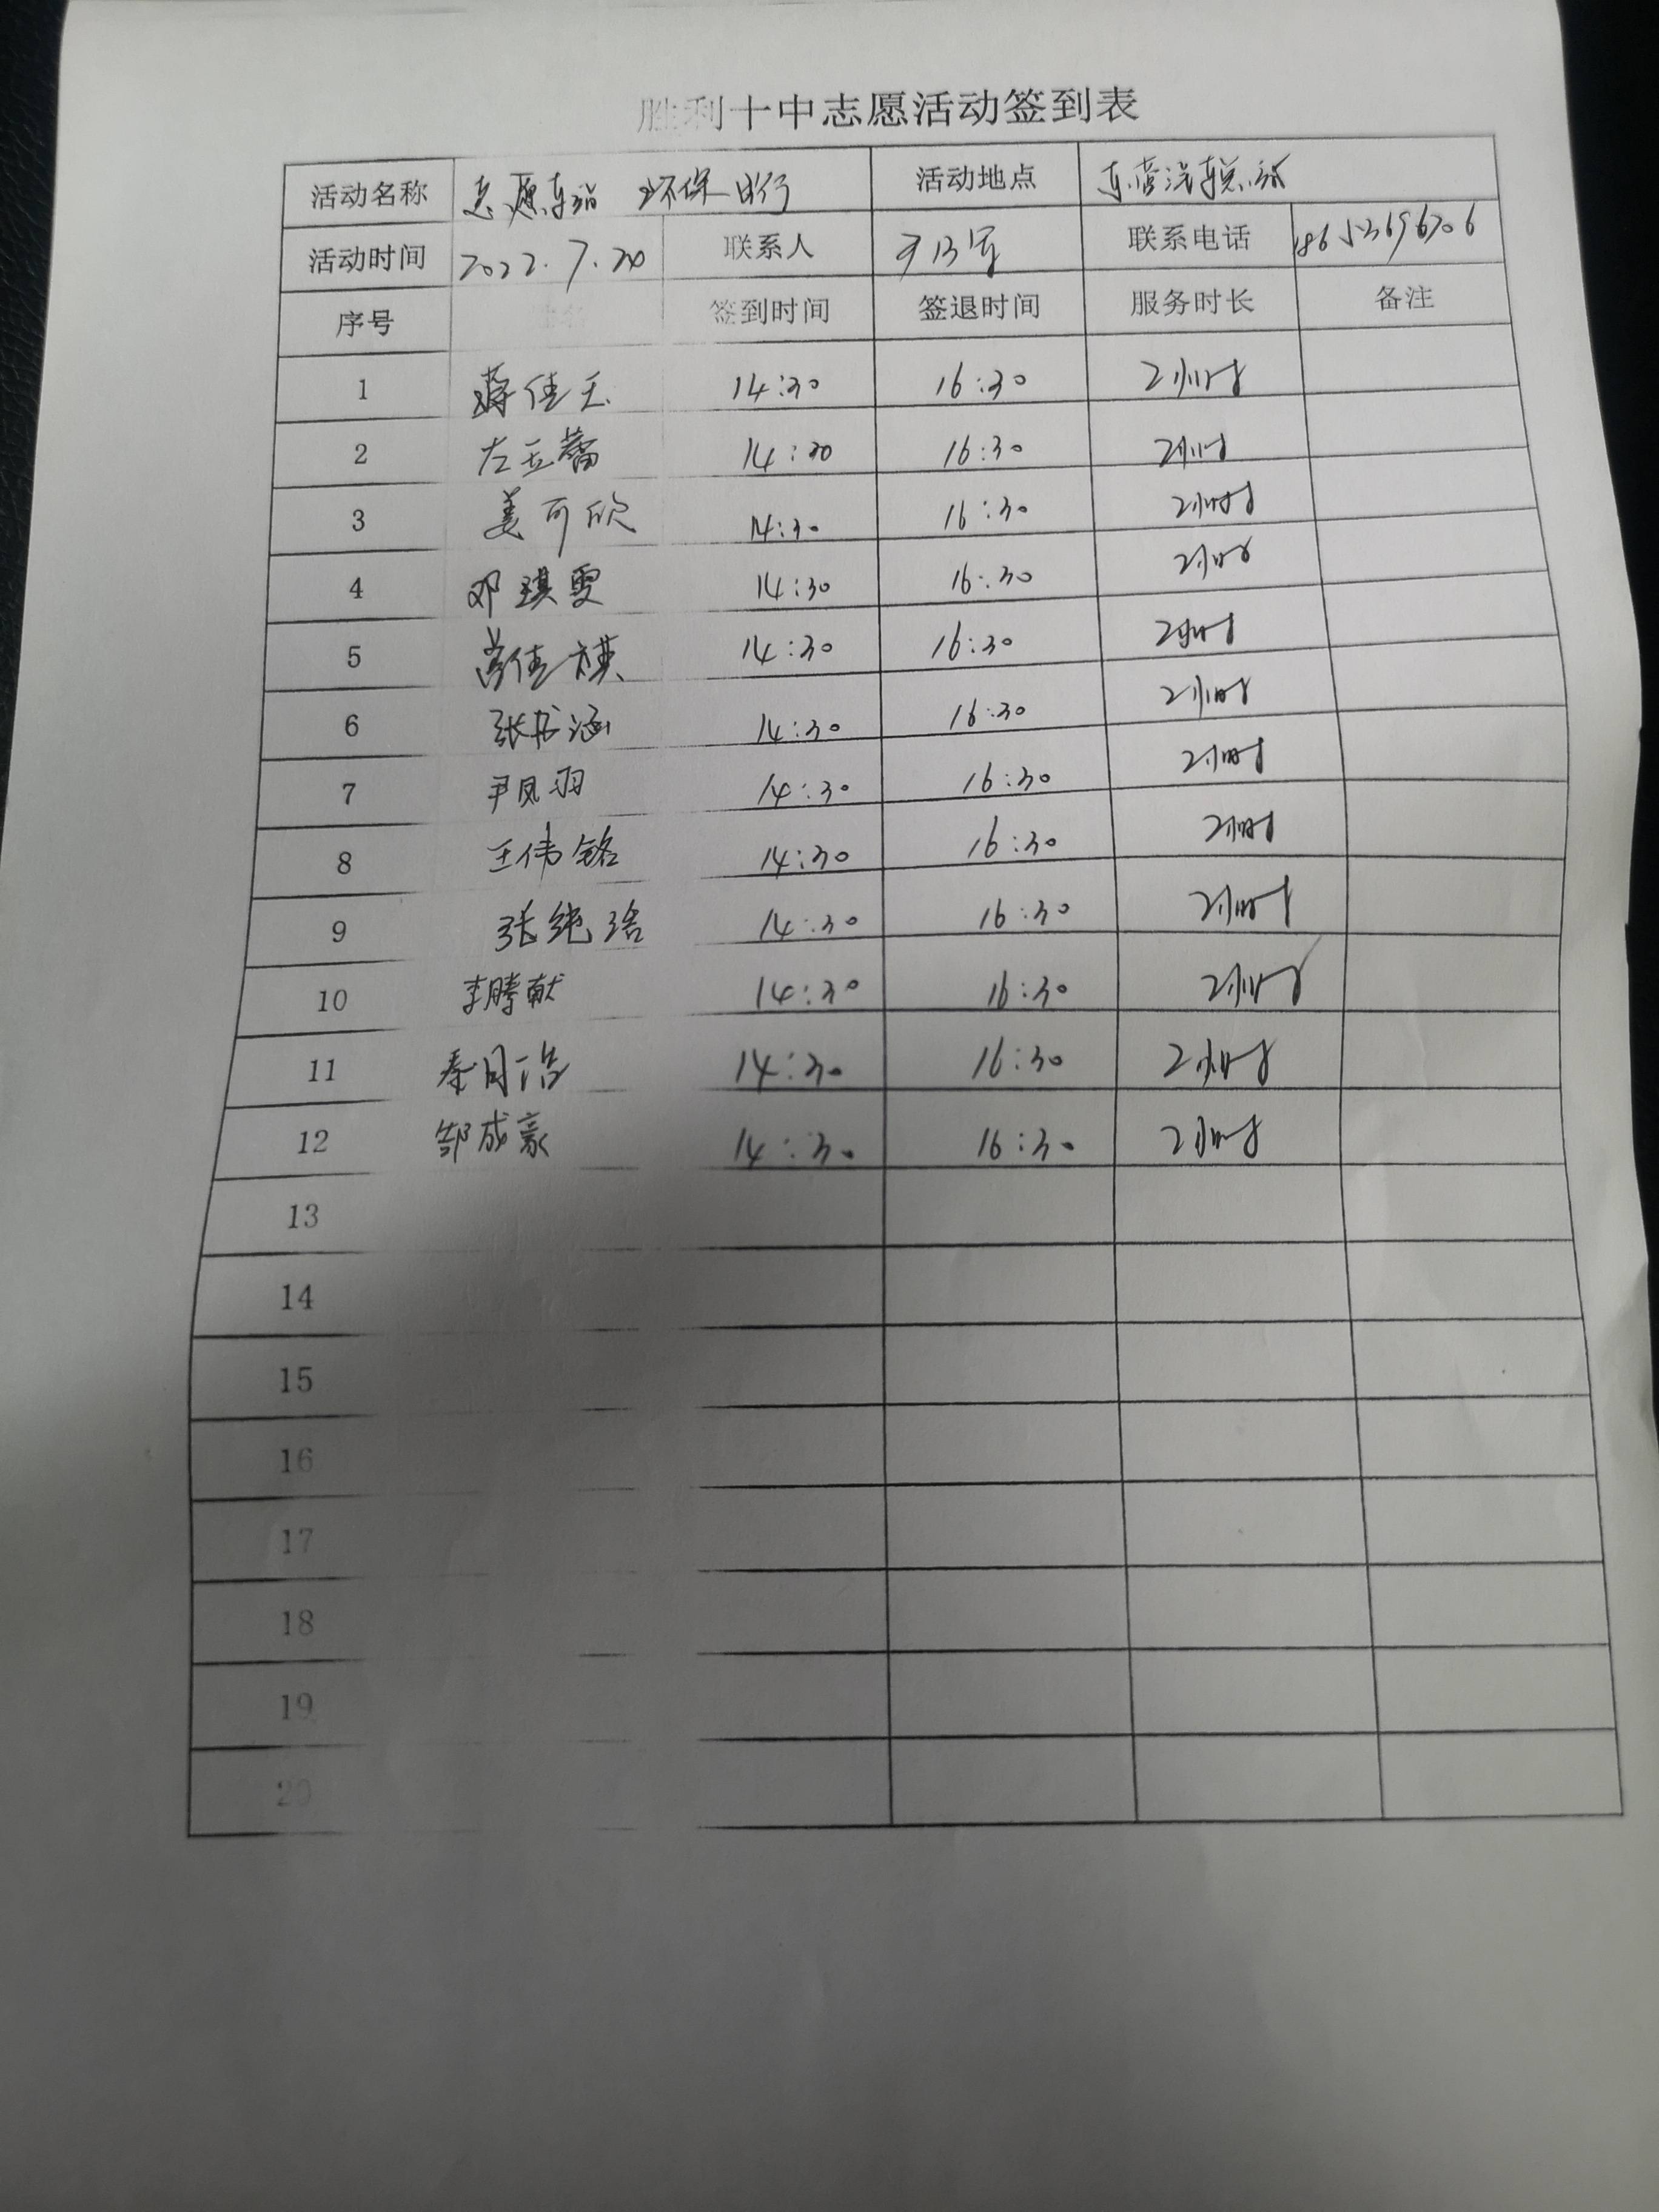 胜利十中志愿活动签到表
活动名称 志愿车站 环保出行 活动地点 东营汽车总站
活动时间 2022.7.20 联系人 联系电话
序号 姓名 签到时间 签退时间 服务时长 备注
1 蒋佳玉 14:30 16:30 2小时
2 左玉蕾 14:30 16:30 2小时
3 姜可欣 14:30 16:30 2小时
4 邓琪雯 14:30 16:30 2小时
5 佳祺 14:30 16:30 2小时
6 张书涵 14:30 16:30 2小时
7 尹凤羽 14:30 16:30 2小时
8 王伟铭 14:30 16:30 2小时
9 张纯 14:30 16:30 2小时
10 李腾献 14:30 16:30 2小时
11 秦同浩 14:30 16:30 2小时
12 郜成豪 14:30 16:30 2小时
13
14
15
16
17
18
19
20